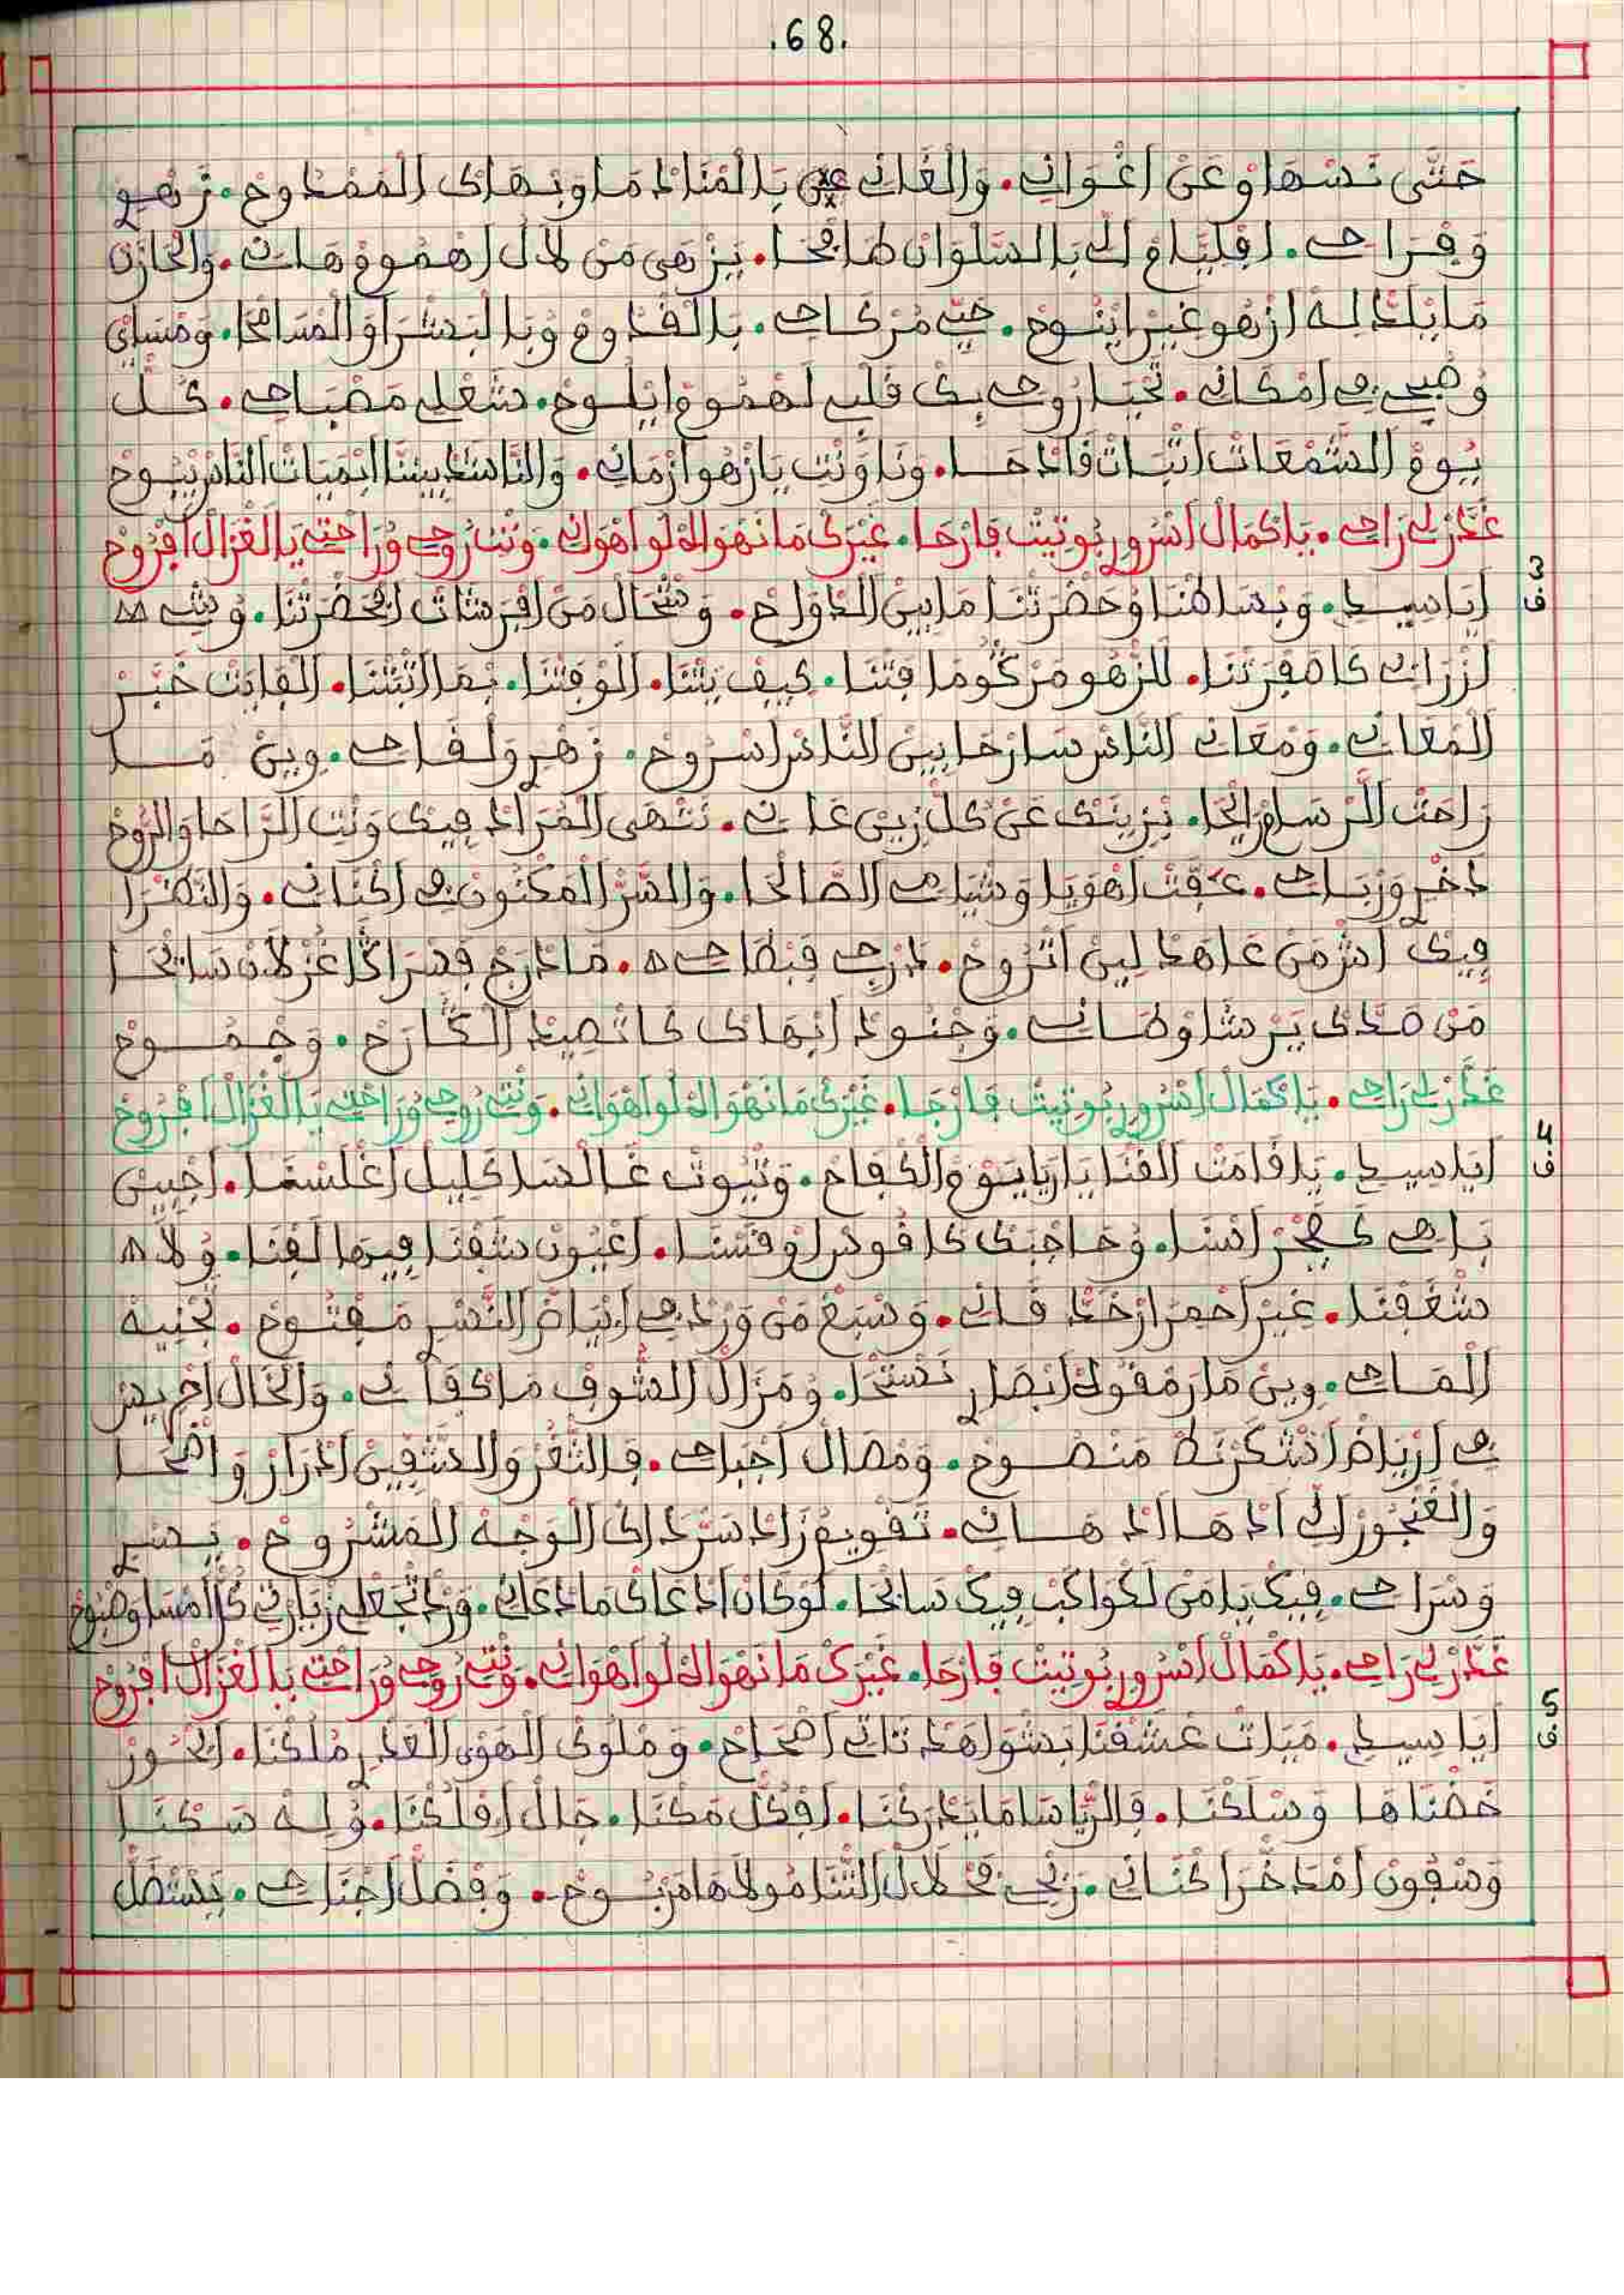 .68.
حَتَّى نَسْهَاوْ عَنْ اغْوَانِي. وَالْغَانِي بَالْمْنَادْمَا وَبْهَاكْ الْمَمْدُوحْ. زَهْوِي
وَفْرَاحِي. افْلِيَّامْ اللِّي بَالسَّلْوَانْ طَافْحَا. يَزْهَى مَنْ لَالُ اهْمُومْ هَانِي. وَالْحَازَنْ
مَا يْلَدْ لِهْ ازْهُو غِيرْ ايْنُوحْ. حَيِّ مُرْكَاحِي. بَالْقْدُومْ وُبَالْبَشْرَا وَالْمْسَامْحَا. وَمْسَايَ
وُصْبْحِي فِي امْكَانِي. تَحْيَا رُوحِي بِكْ قَلْبِ لَهْمُومْ ايْلُوحْ. شَعْلِي مَصْبَاحِي. كُلّْ
يُومْ الشَّمْعَاتْ اتْبَاتْ قَادْحَا. وَنَا وَنْتِ يَا زْهُو ازْمَانِي. وَالنَّاشَدْ بِيتْنَا ابْمَيَاتْ النَّاسْ يْبُوحْ
غَدَّرْ لِي رَاحِي. يَا كْمَالْ اسْرُورِي بُوتِيتْ فَارْحَا. غَيْرَكْ مَا نَهْوَاهْ لُو اهْوَانِي. وَنْتِ رُوحِي وْرَاحْتِي يَا الْغْزَالْ افْرُوحْ
3
ف
أَيَا سِيدِي. وَبْسَاطْنَا وُحَضْرَتْنَا مَا بِينْ الدْوَاحْ. وَشْحَالْ مَنْ افْرَشَاتْ افْحَضْرَتْنَا. وُشِي
لَزْرَابِي كَامْفَرْتْنَا. لَلزَّهُو مَرْكُومَا فِتْنَا. كِيفْ بِتْنَا. الْوَقْتْنَا. بْمَا اتْبَتْنَا. الْفَايَتْ خْبَرْ
الْمْعَانِي. وَمْعَانِي النَّاسْ سَارْحَا بِينْ النَّاسْ اسْرُوحْ. زَهْرِ وَلْقَاحِي. وِينْ مَا
رَاحَتْ الرْسَامْ رَايْحَا. بْزِينَكْ عَنْ كُلّْ زِينْ غَانِي. نَنْهَى الْمُرَادْ فِيكْ وَنْتِ الرَّاحَا وَالرُّوحْ
دْخْرِ وَرْبَاحِي. عَفّْتْ اهْوَيَا وَشْيَامِي الصَّالْحَا. وَالسَّرّْ الْمَكْنُونْ فِي اكْنَانِي. وَالنَّظْرَا
فِيكْ امْرْ مَنْ عَاهَدْ لِينْ اتْرُوحْ. دْرْجِي فَبْطَاحِي. مَا دْرَجْ فَصْرَاكْ اغْزْلَانْ سَايْحَا
مَنْ صَدِّكْ يَرْشَاوْ طْسَانِي. وَجْنُودْ ابْهَاكْ كَا تْصِيدْ الْكَارَحْ. وَجْمُوحْ
غَدَّرْ لِي رَاحِي. يَا كْمَالْ اسْرُورِي بُوتِيتْ فَارْحَا. غَيْرَكْ مَا نَهْوَاهْ لُو اهْوَانِي. وَنْتِ رُوحِي وْرَاحْتِي يَا الْغْزَالْ افْرُوحْ
4
ف
أَيَا سِيدِي. يَا قَامْتْ الْقْنَا يَا رَايَا يُومْ الْكْفَاحْ. وَتْيُوتْ غَالْسَا كَلِّيلْ اغْلَسْنَا. اجْبِينْ
بَاهِي كَفْجَرْ انْسَا. وُحَاجْبَكْ كَا قُوسْ اوْ قَسْنَا. اعْيُونْ شَفْنَا فِيهَا لَفْنَا. وُلَا
شْغَفْنَا. غِيرْ احْمَرْ ارْخَدّْ قَانِي. وَسْبَغْ مَنْ وَرْدْ فِي ابْيَاضْ النَّسْرِي مَفْتُوحْ. تَجْنِيهْ
الْمَاحِي. وِينْ مَا رَمْقُوكْ ابْصَارِي نَسْتْحَا. وُمَزَالْ الشُّوفْ مَا كْفَانِي. وَالْخَالْ احْرِيسْ
فِي ارْيَاضْ اشْكَرْنَطْ مَنْصُوحْ. وَمْصَالْ اجْبَاحِي. فَالثّْغَرْ وَالشَّفِينْ ادْرَارْ وَاضْحَا
وَالْغَنْجُورْ اللِّي ادْهَا ادْهَانِي. تَقْوِيمْ زَادْ سَرّْ دَاكْ الْوَجْهْ الْمَشْرُوحْ. يَسْرِي
وَسْرَاحِي. فِيكْ يَا مَنْ لَكْوَاكَبْ فِيكْ سَابْحَا. لَوْ كَانْ ادْعَاكْ مَا دْعَانِي. وَرْدْ تَجْعَلْ زْيَارْتِي كُلّْ امْسَا وَصْبُوحْ
غَدَّرْ لِي رَاحِي. يَا كْمَالْ اسْرُورِي بُوتِيتْ فَارْحَا. غَيْرَكْ مَا نَهْوَاهْ لُو اهْوَانِي. وَنْتِ رُوحِي وْرَاحْتِي يَا الْغْزَالْ افْرُوحْ
5
ف
أَيَا سِيدِي. مَيْلَاتْ عَشْقْنَا بَشْوَاهَدْ تَاتِي اصْحَاحْ. وَمْلُوكْ الْهْوَى الْعَدْرِي مْلَكْنَا. ابْحُورْ
خَضْنَاهَا وَسْلَكْنَا. فَالرِّيَاسَا مَا يَدَّرَكْنَا. افْكُلّْ مَكْنَا. جَالْ افْلَكْنَا. وُلِهْ سَكْنَا
وَسْفُونْ امْدَخْرَا كْنَانِي. رَبْحِي فَحْلَالْ الثّْنَا مُولَاهَا مَرْبُوحْ. وَفْضَلْ اجْنَاحِي. يَسْتْظَلّْ